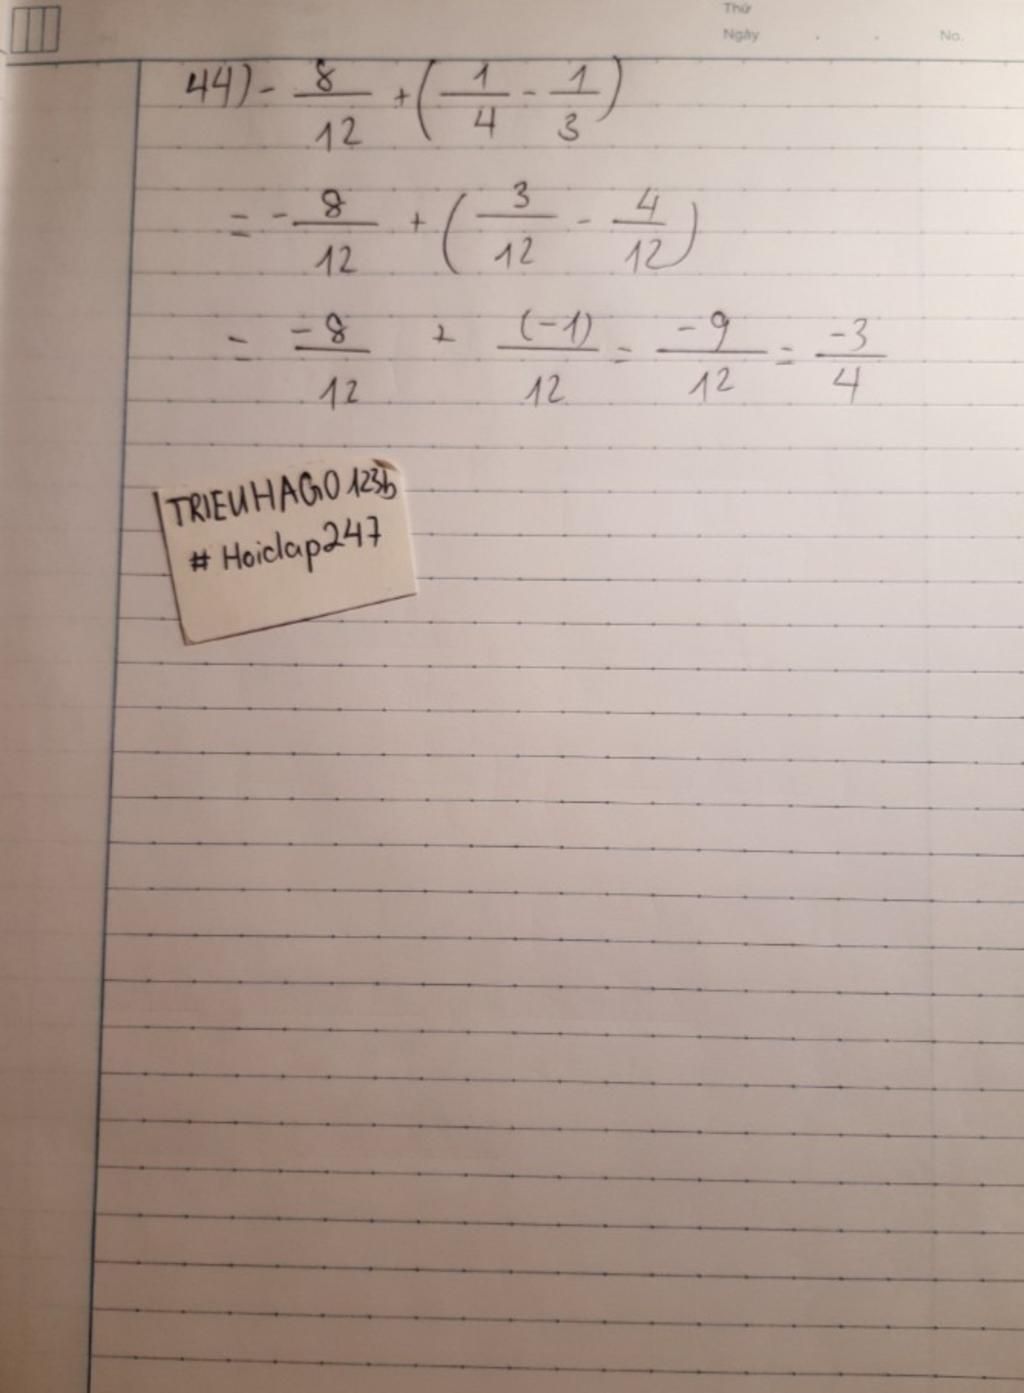 Thứ
Ngày . . No.
44) - 8/12 + (1/4 - 1/3)
= - 8/12 + (3/12 - 4/12)
= -8/12 + (-1)/12 = -9/12 = -3/4
TRIEUHAGO123b
# Hoidap247